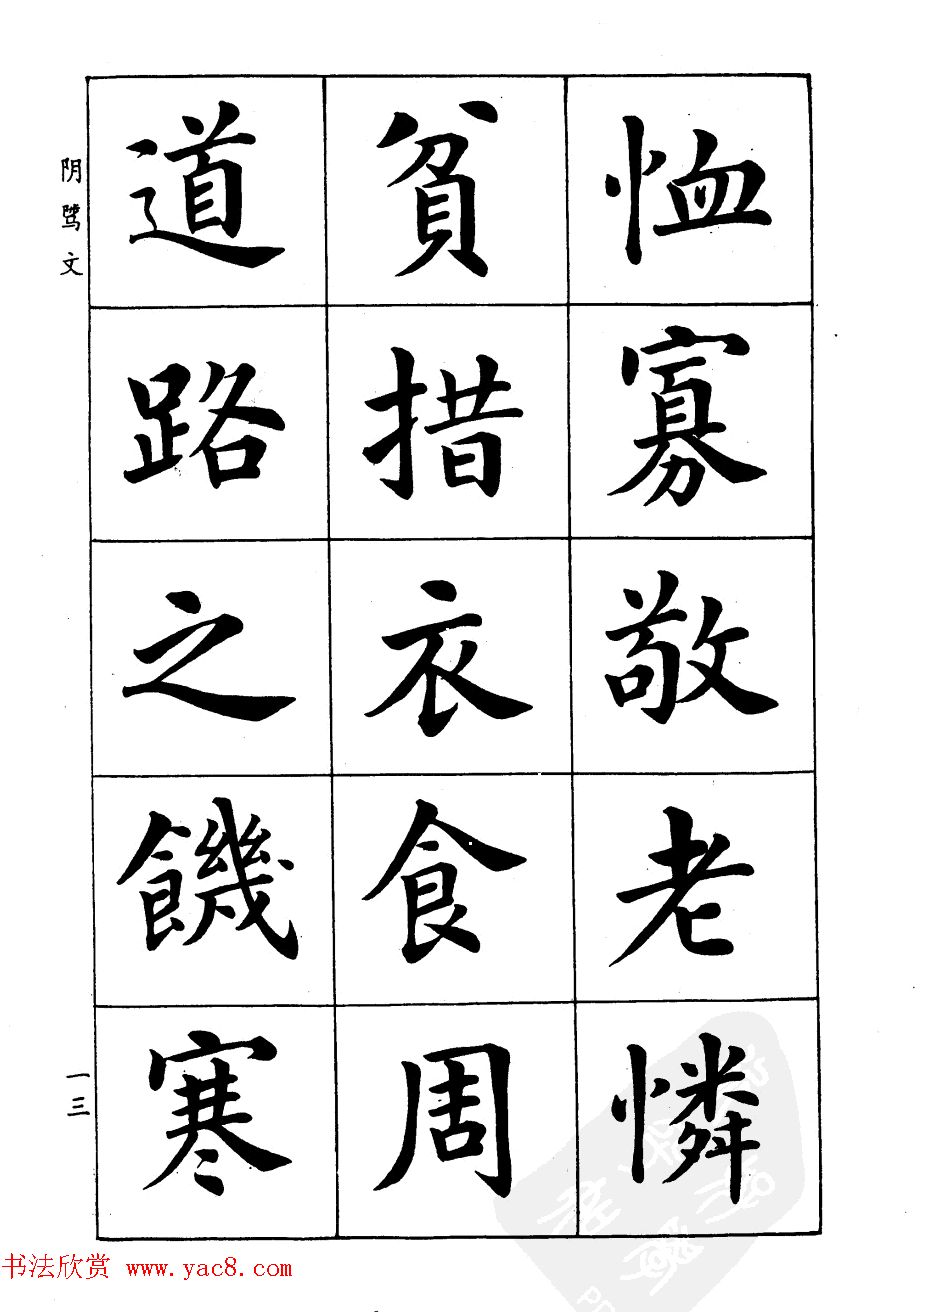 恤寡敬老憐
貧措衣食周
道路之饑寒
阴骘文
一三
书法欣赏 www.yac8.com